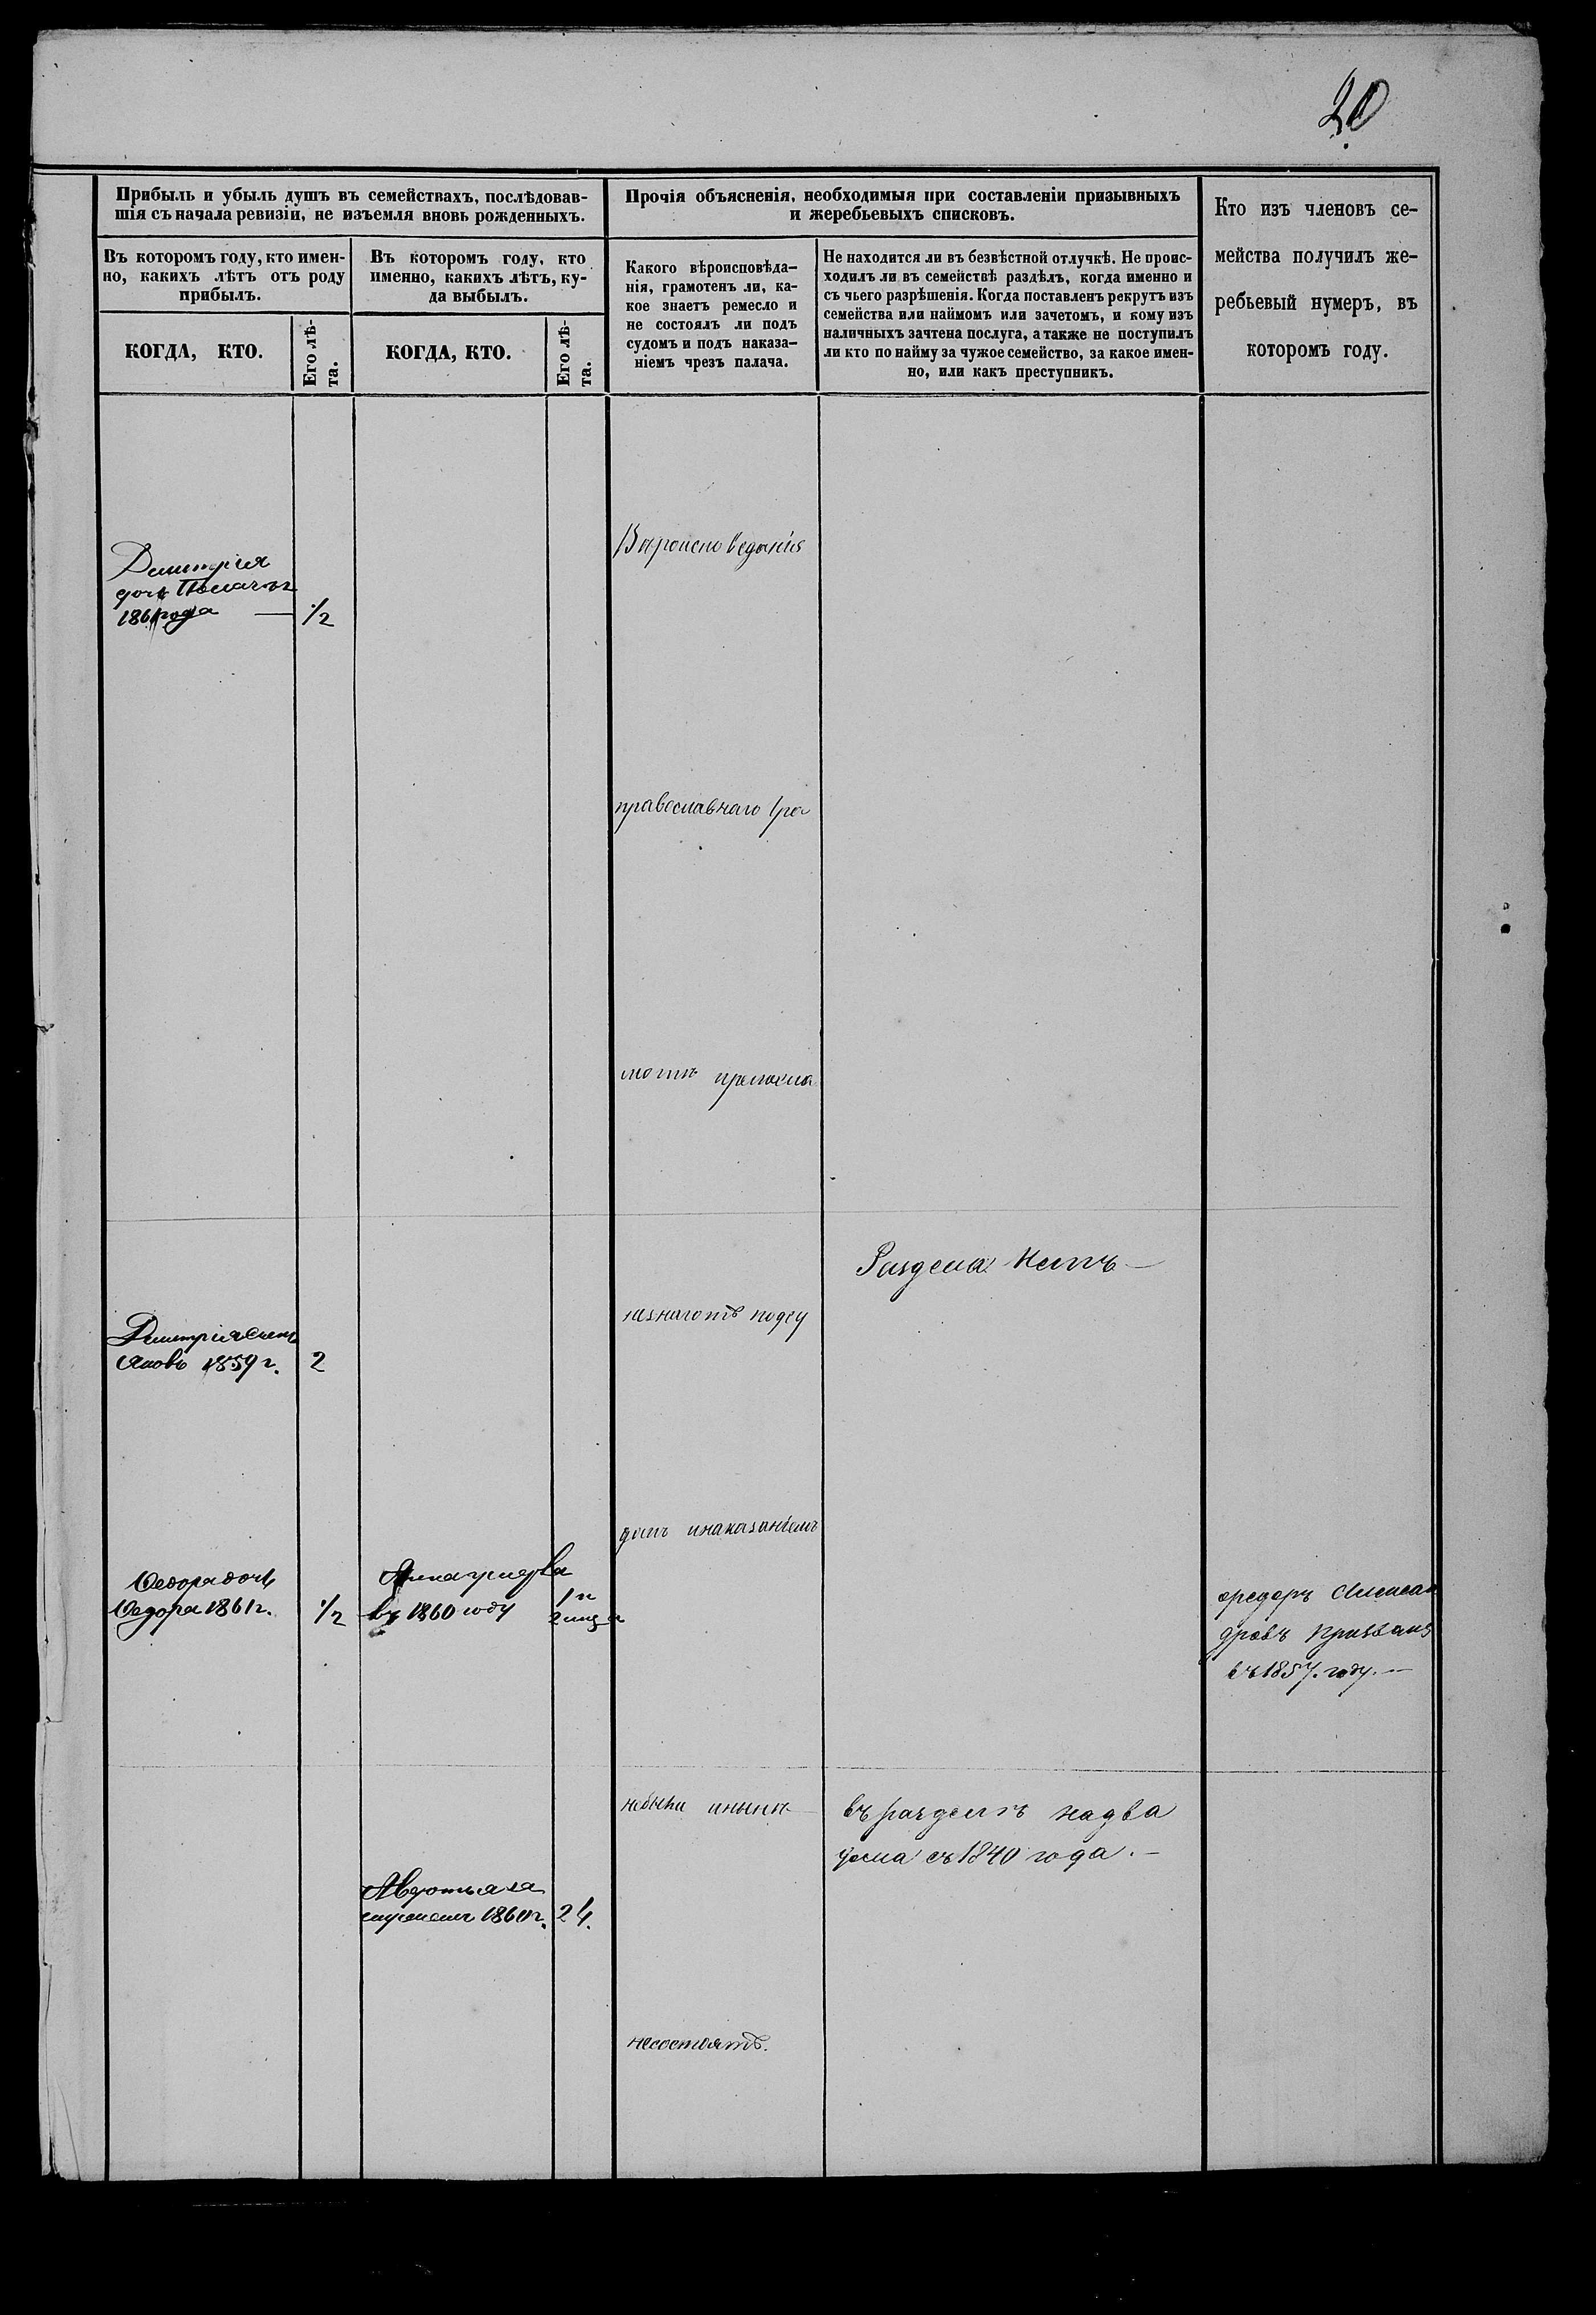 20
Прибыль и убыль душъ въ семействахъ, послѣдовав-
шія съ начала ревизіи, не изъемля вновь рожденныхъ.
Прочія объясненія, необходимыя при составленіи призывныхъ
и жеребьевыхъ списковъ.
Кто изъ членовъ се-
мейства получилъ же-
ребьевый нумеръ, въ
которомъ году.
Въ которомъ году, кто имен-
но, какихъ лѣтъ отъ роду
прибылъ.
Въ которомъ году, кто
именно, какихъ лѣтъ, ку-
да выбылъ.
Какого вѣроисповѣда-
нія, грамотенъ ли, ка-
кое знаетъ ремесло и
не состоялъ ли подъ
судомъ и подъ наказа-
ніемъ чрезъ палача.
Не находится ли въ безвѣстной отлучкѣ. Не проис-
ходилъ ли въ семействѣ раздѣлъ, когда именно и
съ чьего разрѣшенія. Когда поставленъ рекрутъ изъ
семейства или наймомъ или зачетомъ, и кому изъ
наличныхъ зачтена послуга, а также не поступилъ
ли кто по найму за чужое семейство, за какое имен-
но, или какъ преступникъ.
КОГДА, КТО.
Его лѣ-
та.
КОГДА, КТО.
Его лѣ-
та.
Вѣроисповеданія
Димитрія
дочь
1861 года — 1/2
православнаго гра
мотѣ
Раздела нетъ —
незнаютъ подсу
Димитрія сынъ
Яковъ 1859 г. 2
домъ инаказаніемъ
Ѳедора дочь
Ѳедора 1861 г. 1/2
Анна умерла
въ 1860 году
Ѳедоръ Алексан
дровъ призванъ
въ 1857. году. —
небыли инынѣ
въ разделѣ надва
дома съ 1840 года. —
Авдотья за
1860 г. 24.
несостоятъ.